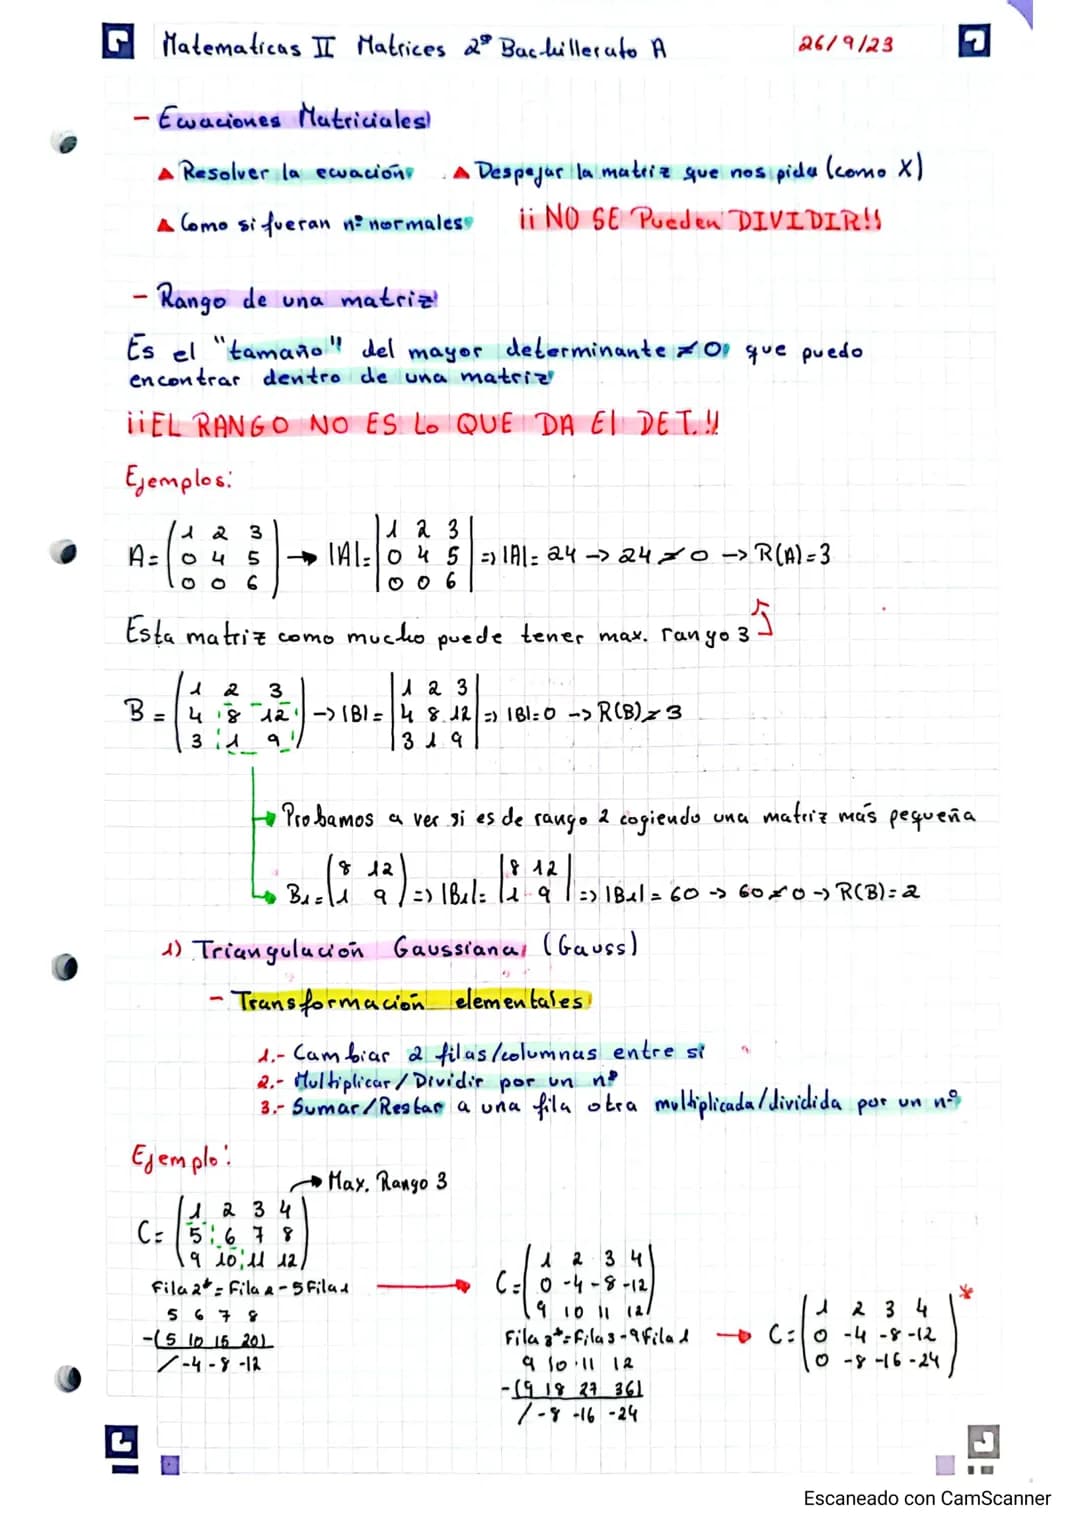 Matematicas II Matrices 2º Bachillerato A 26/9/23
- Ecuaciones Matriciales
▲ Resolver la ecuación ▲ Despejar la matriz que nos pida (como X)
▲ Como si fueran nº normales ¡¡ NO SE Pueden DIVIDIR!!
- Rango de una matriz
Es el "tamaño" del mayor determinante ≠ 0, que puedo
encontrar dentro de una matriz
¡¡EL RANGO NO ES Lo QUE DA El DET.!!
Ejemplos:
1 2 3 1 2 3
A= 0 4 5 → |A|= 0 4 5 => |A|= 24 -> 24 ≠ 0 -> R(A)=3
0 0 6 0 0 6
Esta matriz como mucho puede tener max. rango 3
1 2 3 1 2 3
B = 4 8 12 -> |B| = 4 8 12 => |B|=0 -> R(B) ≠ 3
3 1 9 3 1 9
Probamos a ver si es de rango 2 cogiendo una matriz más pequeña
8 12 8 12
B1= 1 9 => |B1|= 1 9 => |B1| = 60 -> 60 ≠ 0 -> R(B)= 2
1) Triangulación Gaussiana, (Gauss)
- Transformación elementales
1.- Cambiar 2 filas/columnas entre si
2.- Multiplicar / Dividir por un nº
3.- Sumar/Restar a una fila otra multiplicada/dividida por un nº
Ejemplo:
→ Max. Rango 3
1 2 3 4
C= 5 6 7 8
9 10 11 12
Fila 2* = Fila 2 - 5 Fila 1
5 6 7 8
-(5 10 15 20)
/ -4 -8 -12
1 2 3 4
C= 0 -4 -8 -12
9 10 11 12
Fila 3* = Fila 3 - 9 Fila 1
9 10 11 12
-(9 18 27 36)
/ -8 -16 -24
1 2 3 4 *
C= 0 -4 -8 -12
0 -8 -16 -24
Escaneado con CamScanner